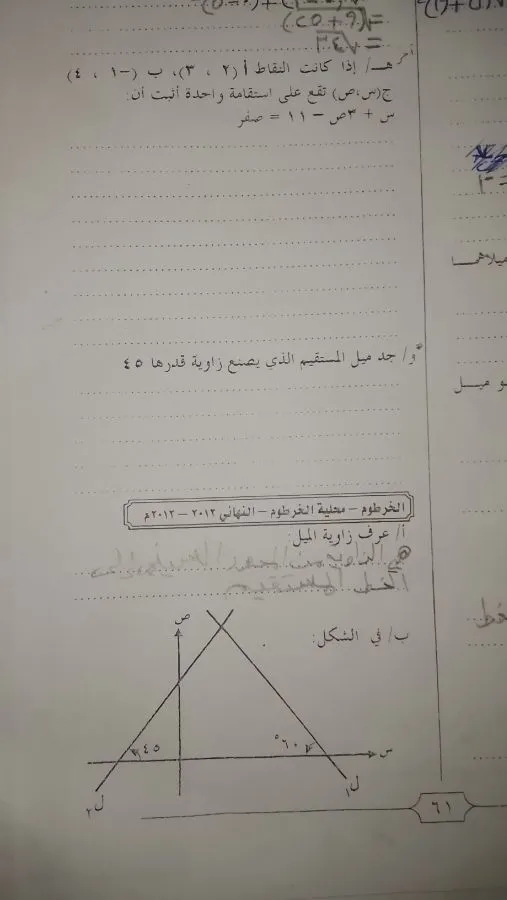 = √(٩ + ٢٥)
= √٣٤
هـ/ إذا كانت النقاط أ (٢ ، ٣)، ب (−١ ، ٤)
ج(س،ص) تقع على استقامة واحدة أثبت أن:
س + ٣ص − ١١ = صفر
و/ جد ميل المستقيم الذي يصنع زاوية قدرها ٤٥
الخرطوم – محلية الخرطوم – النهائي ٢٠١٢ – ٢٠١٣م
أ/ عرف زاوية الميل:
هي الزاوية
الخط المستقيم
ب/ في الشكل:
ص
٤٥
٦٠°
س
ل٢
ل١
٦١
ميلاهمـا
و ميـــل